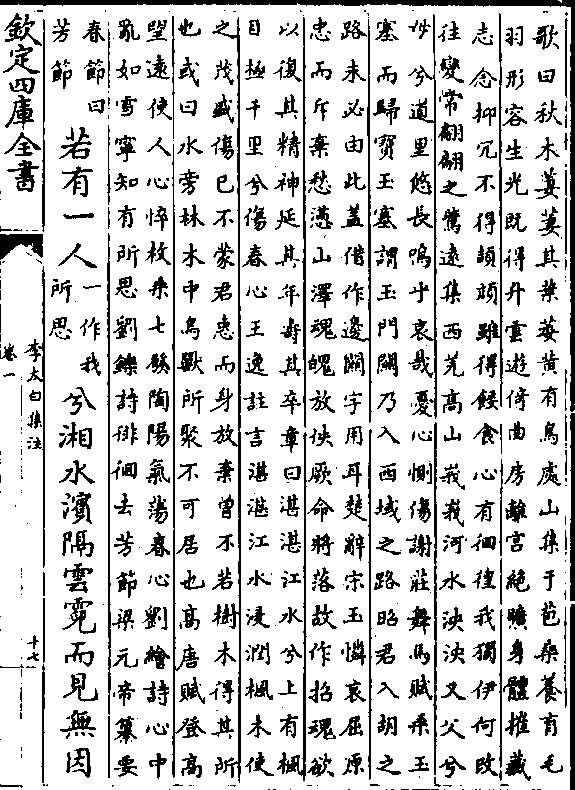 歌曰秋木萋萋其葉萎黃有鳥處山集于苞桑養育毛
羽形容生光既得升雲遊倚曲房離宮絶曠身體摧藏
志念抑冗不得頡頏雖得餧食心有徊徨我獨伊何改
往變常翩翩之鷰遠集西羌高山峩峩河水泱泱父兮
母兮道里悠長嗚乎哀哉憂心惻傷謝莊舞馬賦乘玉
塞而歸寳玉塞謂玉門關乃入西域之路昭君入胡之
路未必由此蓋借作邊關字用耳楚辭宋玉憐哀屈原
忠而斥棄愁懣山澤魂魄放佚厥命將落故作招魂欲
以復其精神延其年壽其卒章曰湛湛江水兮上有楓
目極千里兮傷春心王逸註言湛湛江水浸潤楓木使
之茂盛傷已不蒙君惠而身放棄曾不若樹木得其所
也或曰水旁林木中鳥獸所聚不可居也高唐賦登高
望遠使人心悴枚乘七發陶陽氣蕩春心劉繪詩心中
亂如雪寧知有所思劉鑠詩徘徊去芳節梁元帝纂要
春節曰
芳節
若有一人
一作我
所思
兮湘水濱隔雲霓而見無因
欽定四庫全書
李太白集注
卷一
十七